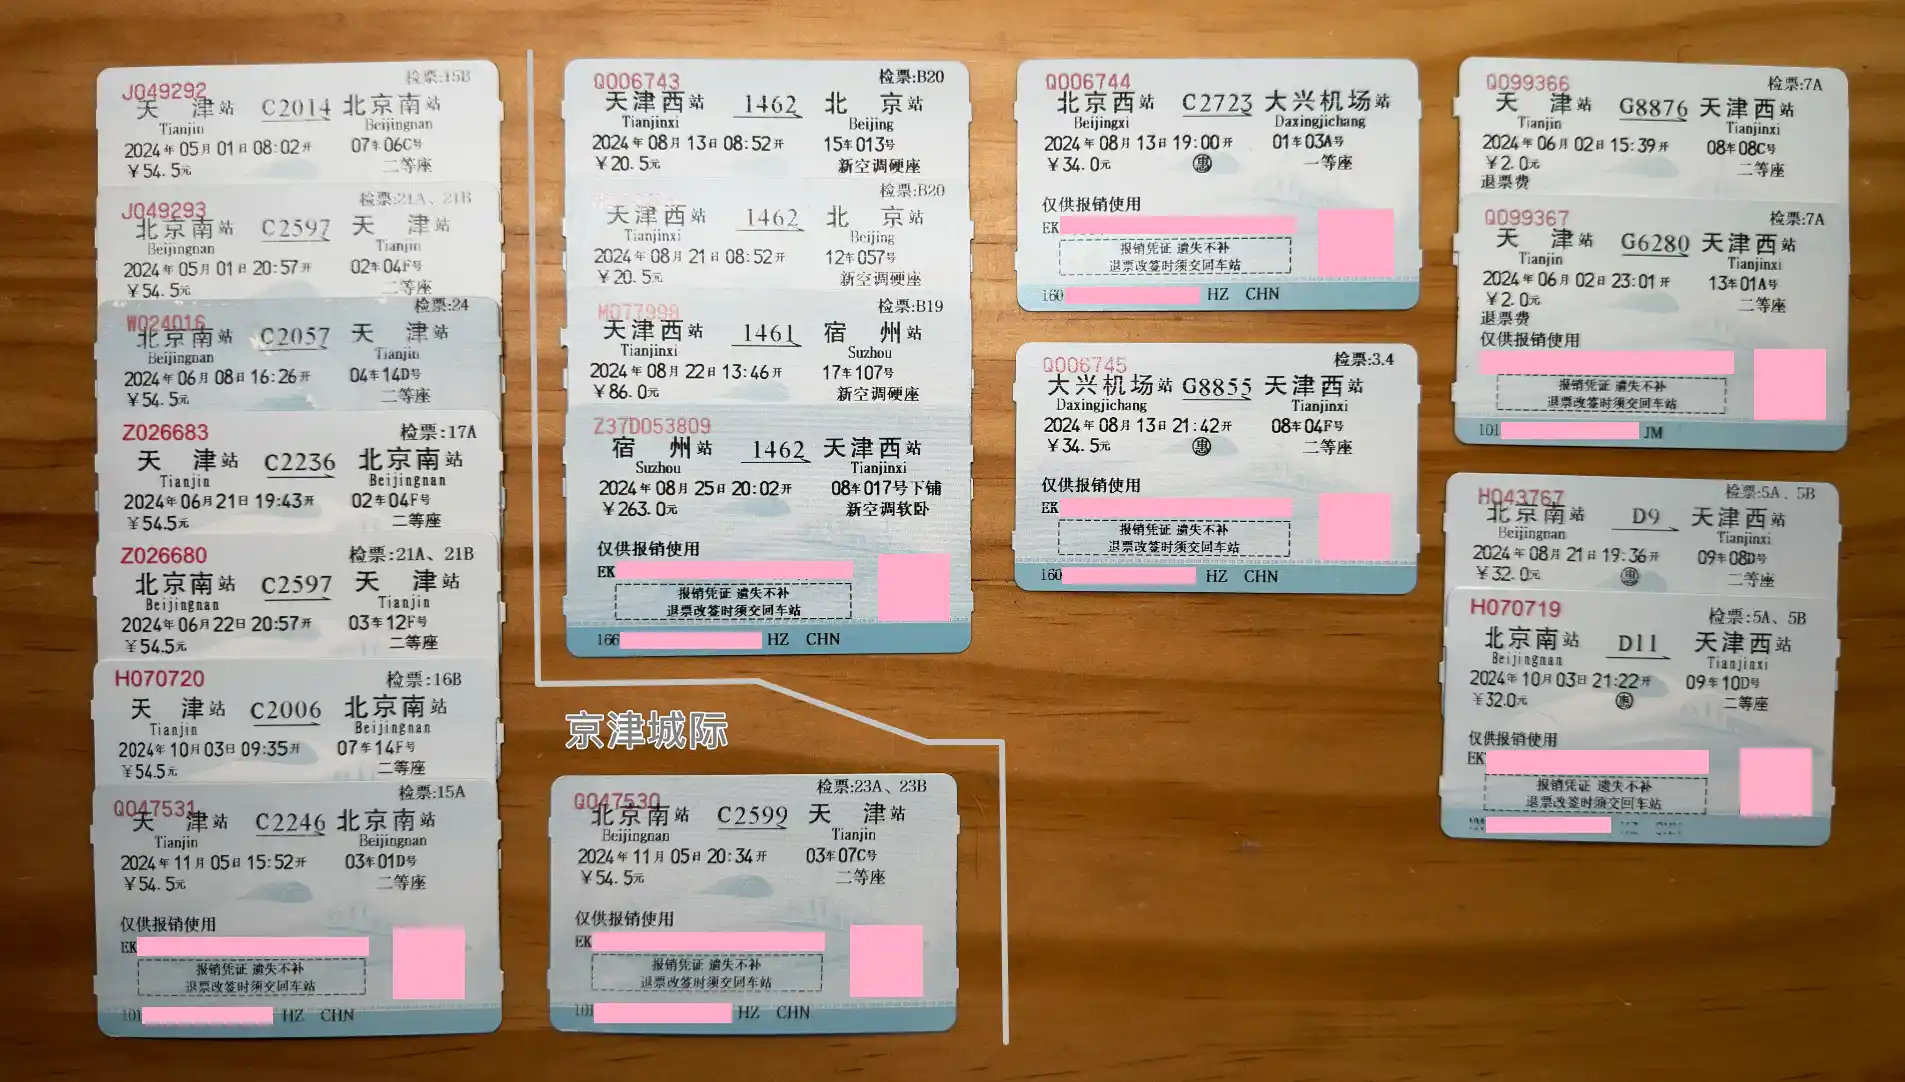 检票:15B
J049292
天津站 C2014 北京南站
Tianjin Beijingnan
2024年05月01日08:02开 07车06C号
￥54.5元 二等座
检票:21A、21B
J049293
北京南站 C2597 天津站
Beijingnan Tianjin
2024年05月01日20:57开 02车04F号
￥54.5元 二等座
检票:24
W024016
北京南站 C2057 天津站
Beijingnan Tianjin
2024年06月08日16:26开 04车14D号
￥54.5元 二等座
Z026683 检票:17A
天津站 C2236 北京南站
Tianjin Beijingnan
2024年06月21日19:43开 02车04F号
￥54.5元 二等座
Z026680 检票:21A、21B
北京南站 C2597 天津站
Beijingnan Tianjin
2024年06月22日20:57开 03车12F号
￥54.5元 二等座
H070720 检票:16B
天津站 C2006 北京南站
Tianjin Beijingnan
2024年10月03日09:35开 07车14F号
￥54.5元 二等座
检票:15A
Q047531
天津站 C2246 北京南站
Tianjin Beijingnan
2024年11月05日15:52开 03车01D号
￥54.5元 二等座
仅供报销使用
EK
报销凭证 遗失不补
退票改签时须交回车站
101 HZ CHN
Q006743 检票:B20
天津西站 1462 北京站
Tianjinxi Beijing
2024年08月13日08:52开 15车013号
￥20.5元 新空调硬座
检票:B20
天津西站 1462 北京站
Tianjinxi Beijing
2024年08月21日08:52开 12车057号
￥20.5元 新空调硬座
M077998 检票:B19
天津西站 1461 宿州站
Tianjinxi Suzhou
2024年08月22日13:46开 17车107号
￥86.0元 新空调硬座
Z37D053809
宿州站 1462 天津西站
Suzhou Tianjinxi
2024年08月25日20:02开 08车017号下铺
￥263.0元 新空调软卧
仅供报销使用
EK
报销凭证 遗失不补
退票改签时须交回车站
166 HZ CHN
京津城际
检票:23A、23B
Q047530
北京南站 C2599 天津站
Beijingnan Tianjin
2024年11月05日20:34开 03车07C号
￥54.5元 二等座
仅供报销使用
EK
报销凭证 遗失不补
退票改签时须交回车站
101 HZ CHN
Q006744
北京西站 C2723 大兴机场站
Beijingxi Daxingjichang
2024年08月13日19:00开 01车03A号
￥34.0元 惠 一等座
仅供报销使用
EK
报销凭证 遗失不补
退票改签时须交回车站
160 HZ CHN
Q006745 检票:3.4
大兴机场站 G8855 天津西站
Daxingjichang Tianjinxi
2024年08月13日21:42开 08车04F号
￥34.5元 惠 二等座
仅供报销使用
EK
报销凭证 遗失不补
退票改签时须交回车站
160 HZ CHN
Q099366 检票:7A
天津站 G8876 天津西站
Tianjin Tianjinxi
2024年06月02日15:39开 08车08C号
￥2.0元 二等座
退票费
Q099367 检票:7A
天津站 G6280 天津西站
Tianjin Tianjinxi
2024年06月02日23:01开 13车01A号
￥2.0元 二等座
退票费
仅供报销使用
报销凭证 遗失不补
退票改签时须交回车站
101 JM
H043767 检票:5A、5B
北京南站 D9 天津西站
Beijingnan Tianjinxi
2024年08月21日19:36开 09车08D号
￥32.0元 惠 二等座
H070719 检票:5A、5B
北京南站 D11 天津西站
Beijingnan Tianjinxi
2024年10月03日21:22开 09车10D号
￥32.0元 惠 二等座
仅供报销使用
EK
报销凭证 遗失不补
退票改签时须交回车站
HZ CHN